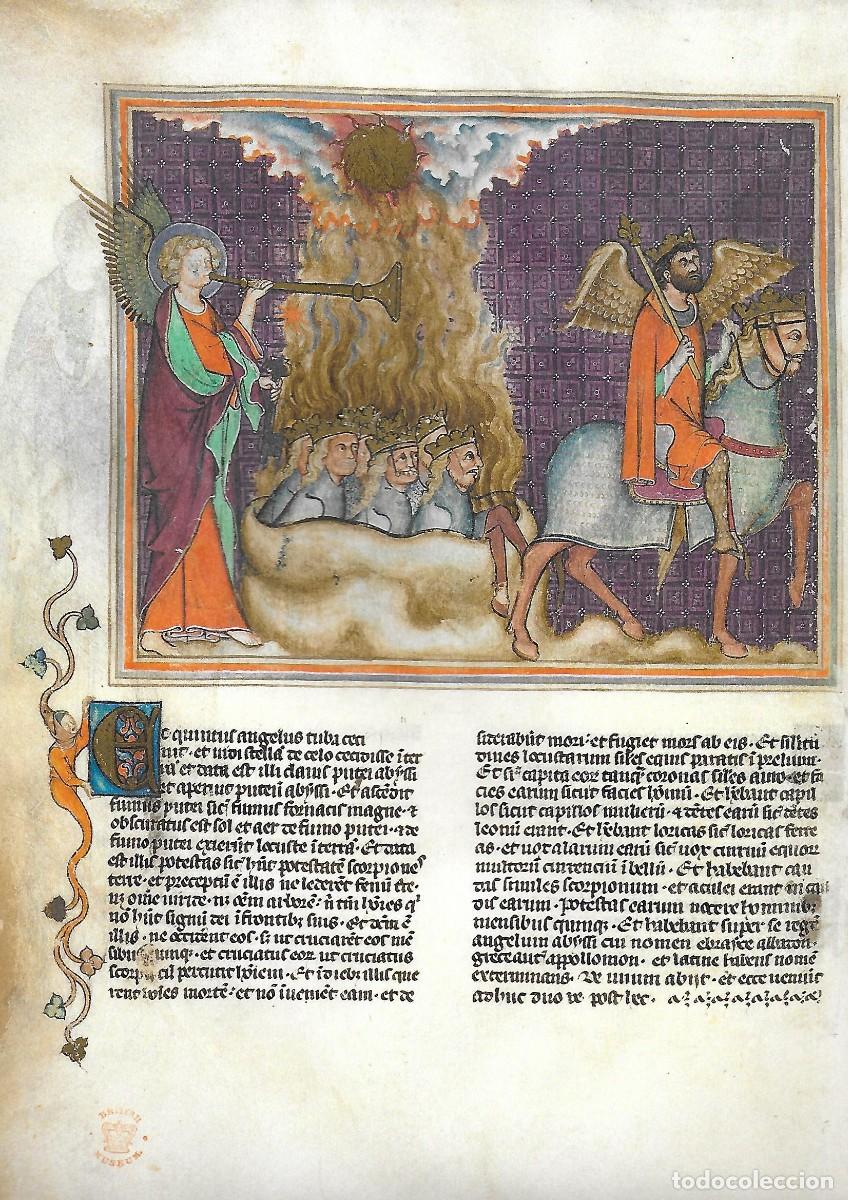 Et quintus angelus tuba ceci
nit · et vidi stellā de celo cecidisse ī ter
rā et data est illi clauis putei abyssi
et aperuit puteū abyssi · Et ascēdit
fumus putei sic̄ fumus fornacis magne · ⁊
obscuratus est sol et aer de fumo putei · ⁊ de
fumo putei exierūt locuste ī terrā · Et data
est illis potestas sic̄ hn̄t potestatē scorpiones
terre · et preceptū ē illis ne lederēt fenū t̄re
nͥ om̄e viride · nͥ oēm arborē · nͥ tm̄ hoīes qͥ
nō hn̄t signū dei ī frontibꝫ suis · Et datū ē
illis · ne occiderēt eos · sꝫ ut cruciarēt eos mē
sibus quinqꝫ · et cruciatus eoꝝ ut cruciatus
scorpii cū percutit hoīem · Et ī diebꝫ illis que
rent hoīes mortē · et nō īuenīent eam · et de
siderabūt mori · et fugiet mors ab eis · Et silitu
dines locustarum siles equis paratis ī prelium ·
Et sͣ capita eoꝝ tanqͣꝫ coronas siles auro · et fa
cies earum sicut facies hoīnū · Et hēbant capil
los sicut capillos mulierū · ⁊ dētes earū sic̄ dētes
leonū erant · Et hēbant loricas sic̄ loricas ferre
as · et vox alarum earū sic̄ vox curruū equoꝝ
multorū currenciū ī bellū · Et habebant cau
das similes scorpionum · et aculei erant in cau
dis earum · potestas earum nocere hominibꝫ
mensibus quinqꝫ · Et habebant super se regē
angelum abyssi cui nomen ebrayce abbaton ·
grece aut̄ appollomon · et latine habens nomē
exterminans · Ve unum abijt · et ecce veniūt
adhuc duo ve post hec ·
BRITISH
MUSEUM
todocoleccion